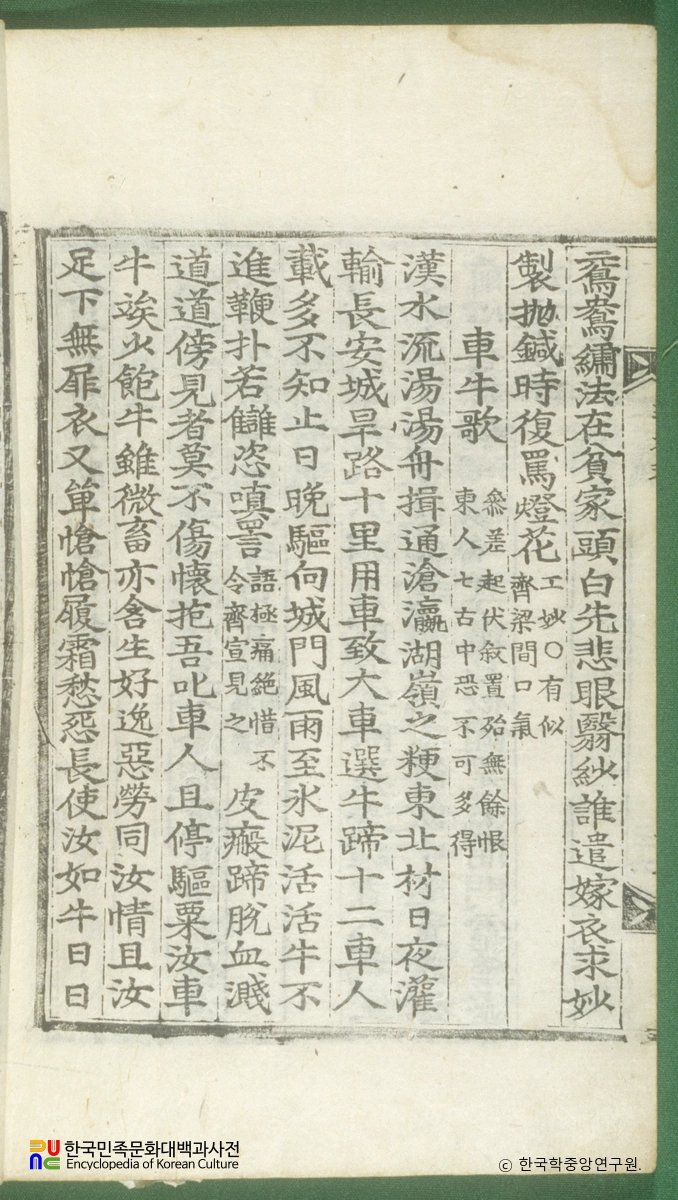 元鴛鴦繡法在貧家頭白先悲眼翳紗誰遣嫁衣求妙
製抛鍼時復罵燈花
工妙〇有似
齊梁間口氣
車牛歌
叅差起伏敍置殆無餘恨
東人七古中恐不可多得
漢水流湯湯舟揖通滄瀛湖嶺之粳東北材日夜灌
輸長安城旱路十里用車致大車選牛蹄十二車人
載多不知止日晩驅向城門風雨至氷泥活活牛不
進鞭扑若讎恣嗔詈
語極痛絶惜不
令齊宣見之
皮瘢蹄脫血濺
道道傍見者莫不傷懷抱吾叱車人且停驅粟汝車
牛竢少飽牛雖微畜亦含生好逸惡勞同汝情且汝
足下無屝衣又單愴愴履霜愁怨長使汝如牛日日
한국민족문화대백과사전
Encyclopedia of Korean Culture
ⓒ 한국학중앙연구원.